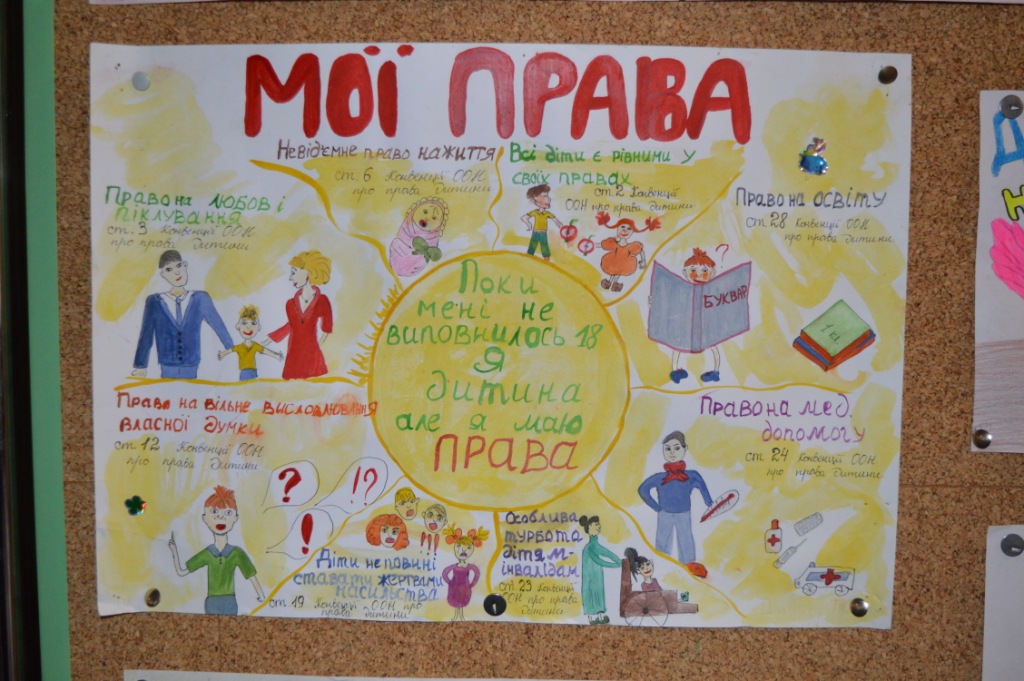 МОЇ ПРАВА
Невід'ємне право на життя
ст. 6 Конвенції ООН
про права дитини
Всі діти є рівними у
своїх правах
ст. 2 Конвенції
ООН про права дитини
Право на ЛЮБОВ і
піклування
ст. 3 Конвенції ООН
про права дитини
Право на ОСВІТУ
ст. 28 Конвенції ООН
про права дитини
?
БУКВАР
1 кл
Поки
мені не
виповнилось 18
Я
дитина
але я маю
ПРАВА
Право на вільне висловлювання
власної думки
ст. 12 Конвенції ООН
про права дитини
?
!?
!
Право на мед.
допомогу
ст. 24 Конвенції ООН
про права дитини
!!!
Діти не повинні
ставати жертвами
насильства
ст. 19 Конвенції ООН про
права дитини
Особлива
турбота
дітям-
інвалідам
ст. 23 Конвенції
ООН про права
дитини